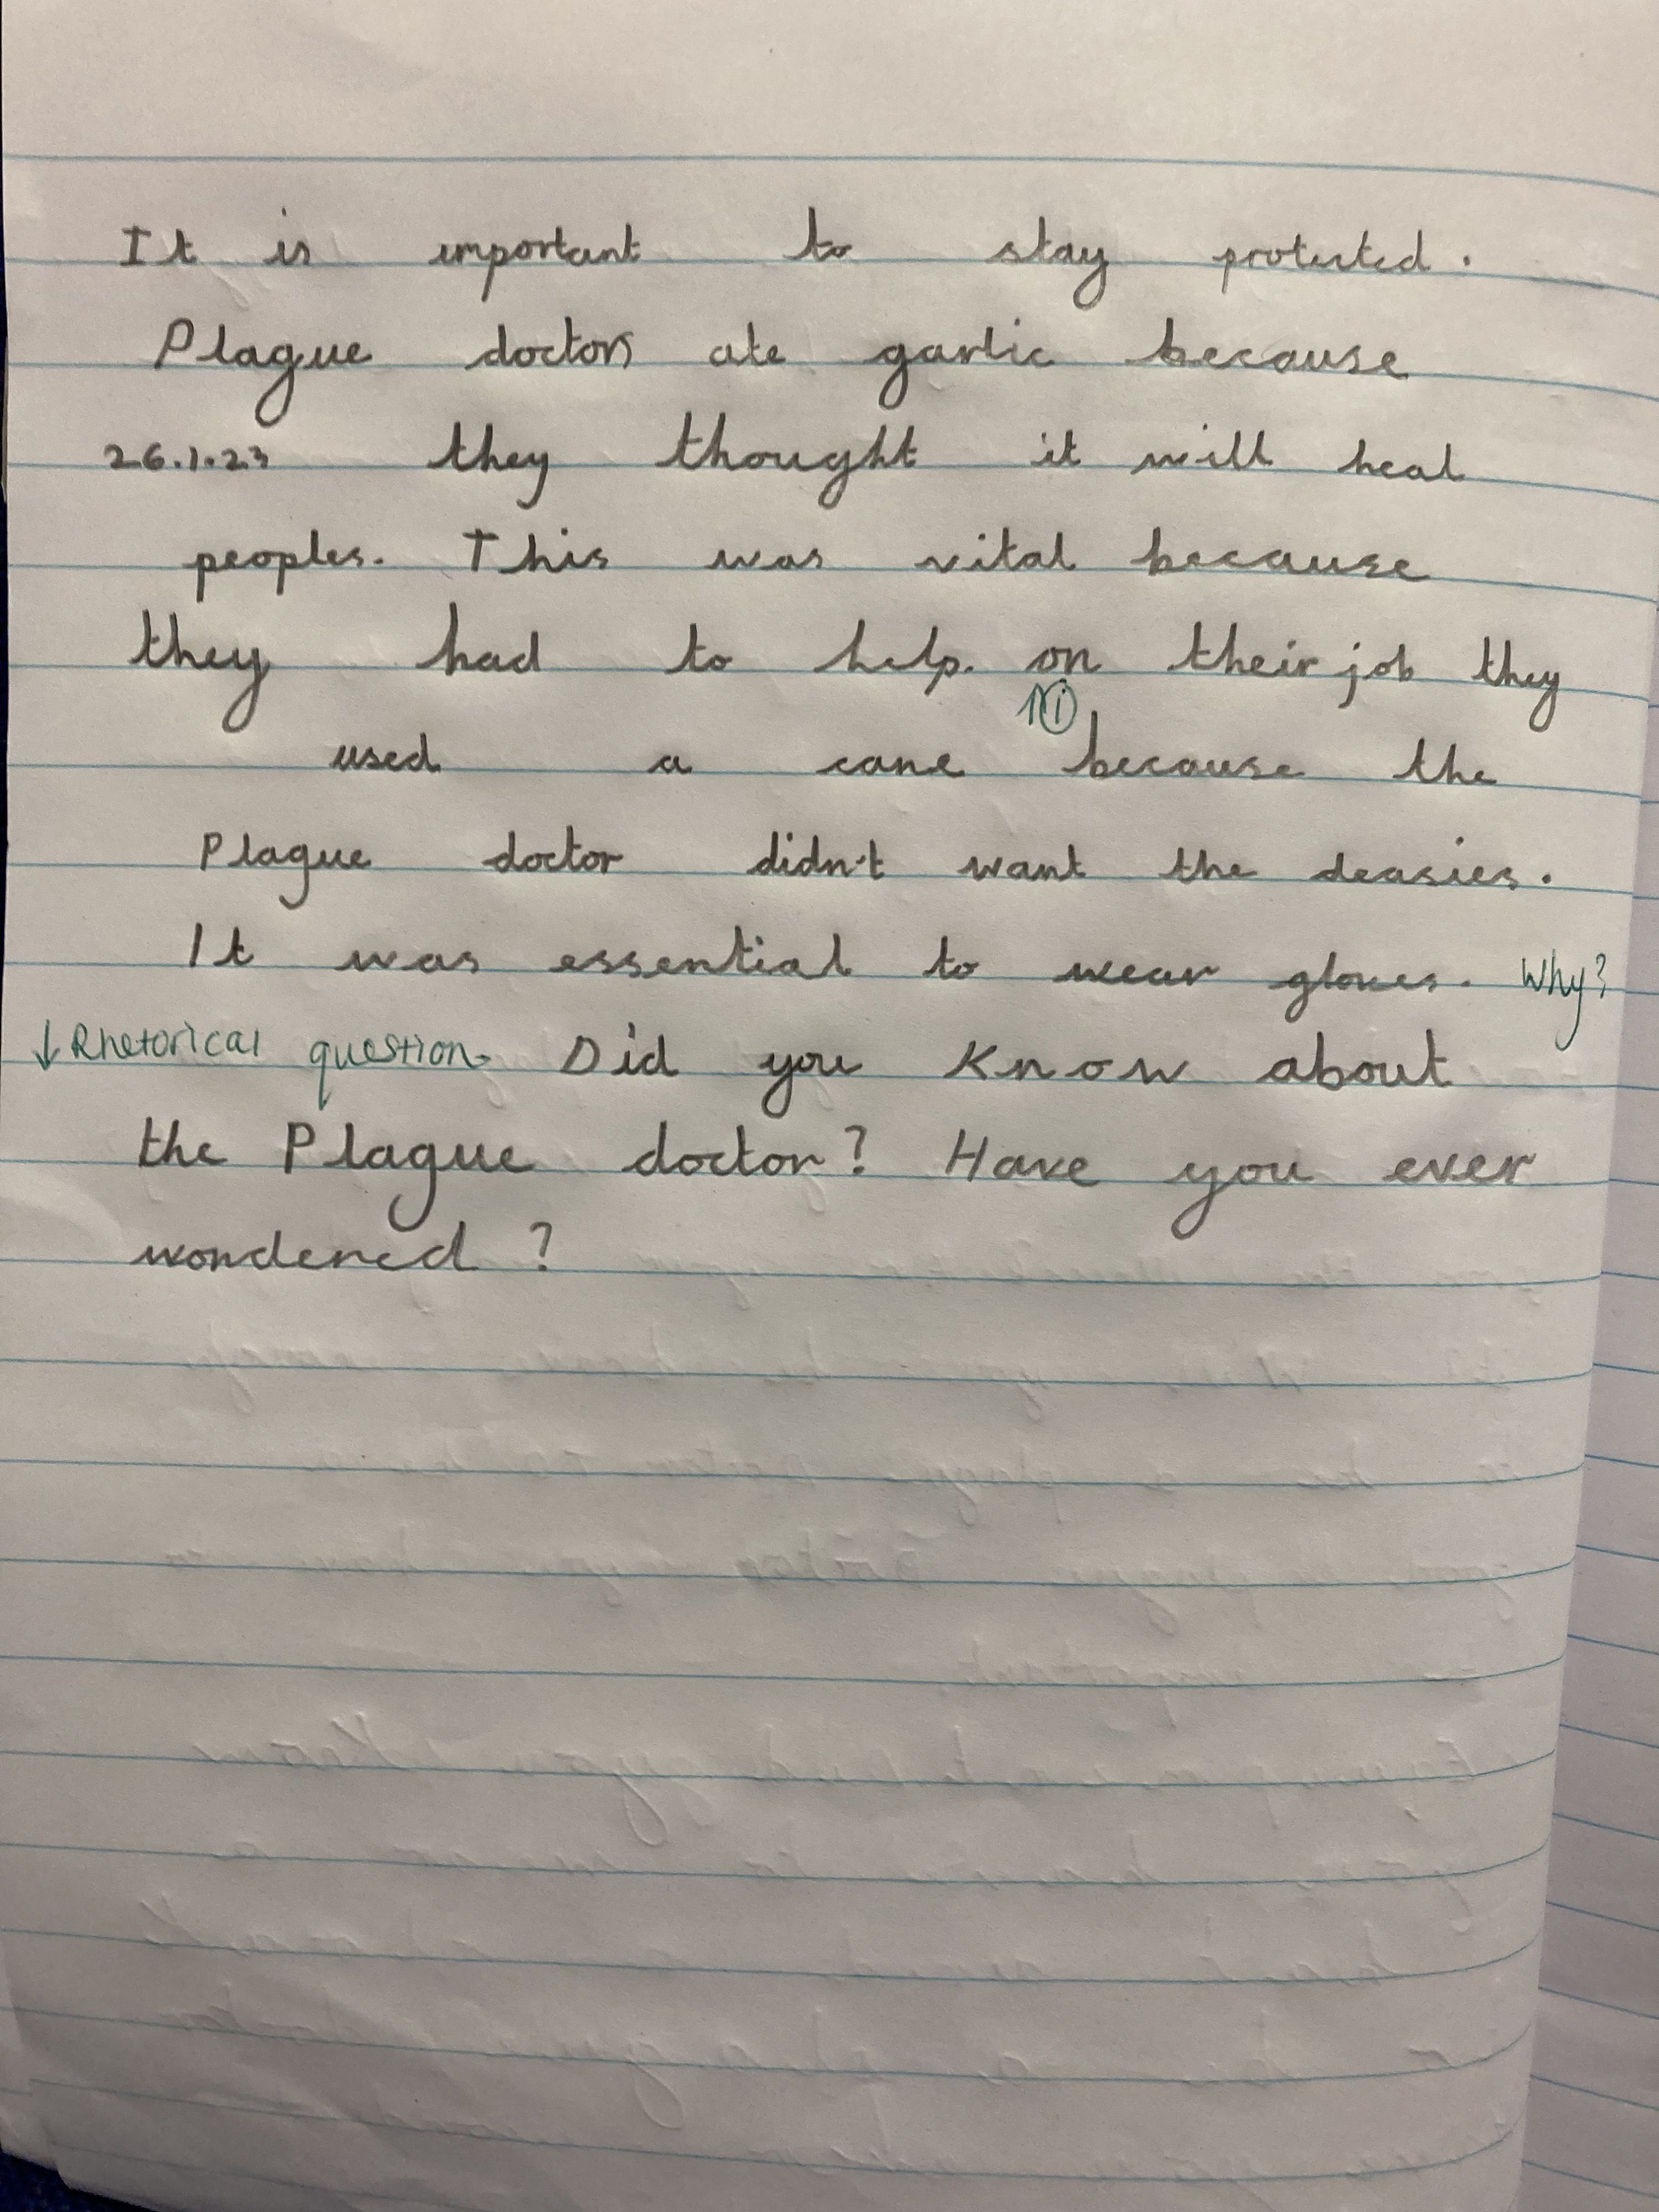 It is important to stay protected.
Plague doctors ate garlic because
26.1.23 they thought it will heal
peoples. This was vital because
they had to help. on their job they
↑ⓘ
used a cane because the
Plague doctor didn't want the deasies.
It was essential to wear gloves. Why?
↓ Rhetorical question. Did you Know about
the Plague doctor? Have you ever
wondered?